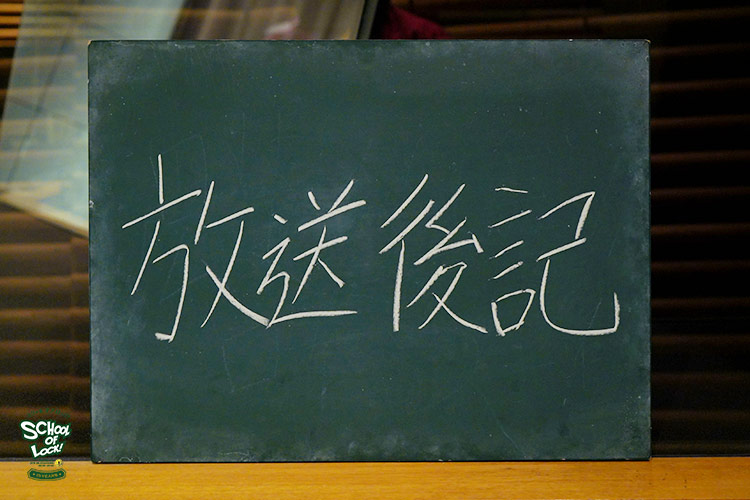 放送後記
SCHOOL
OF
LOCK!